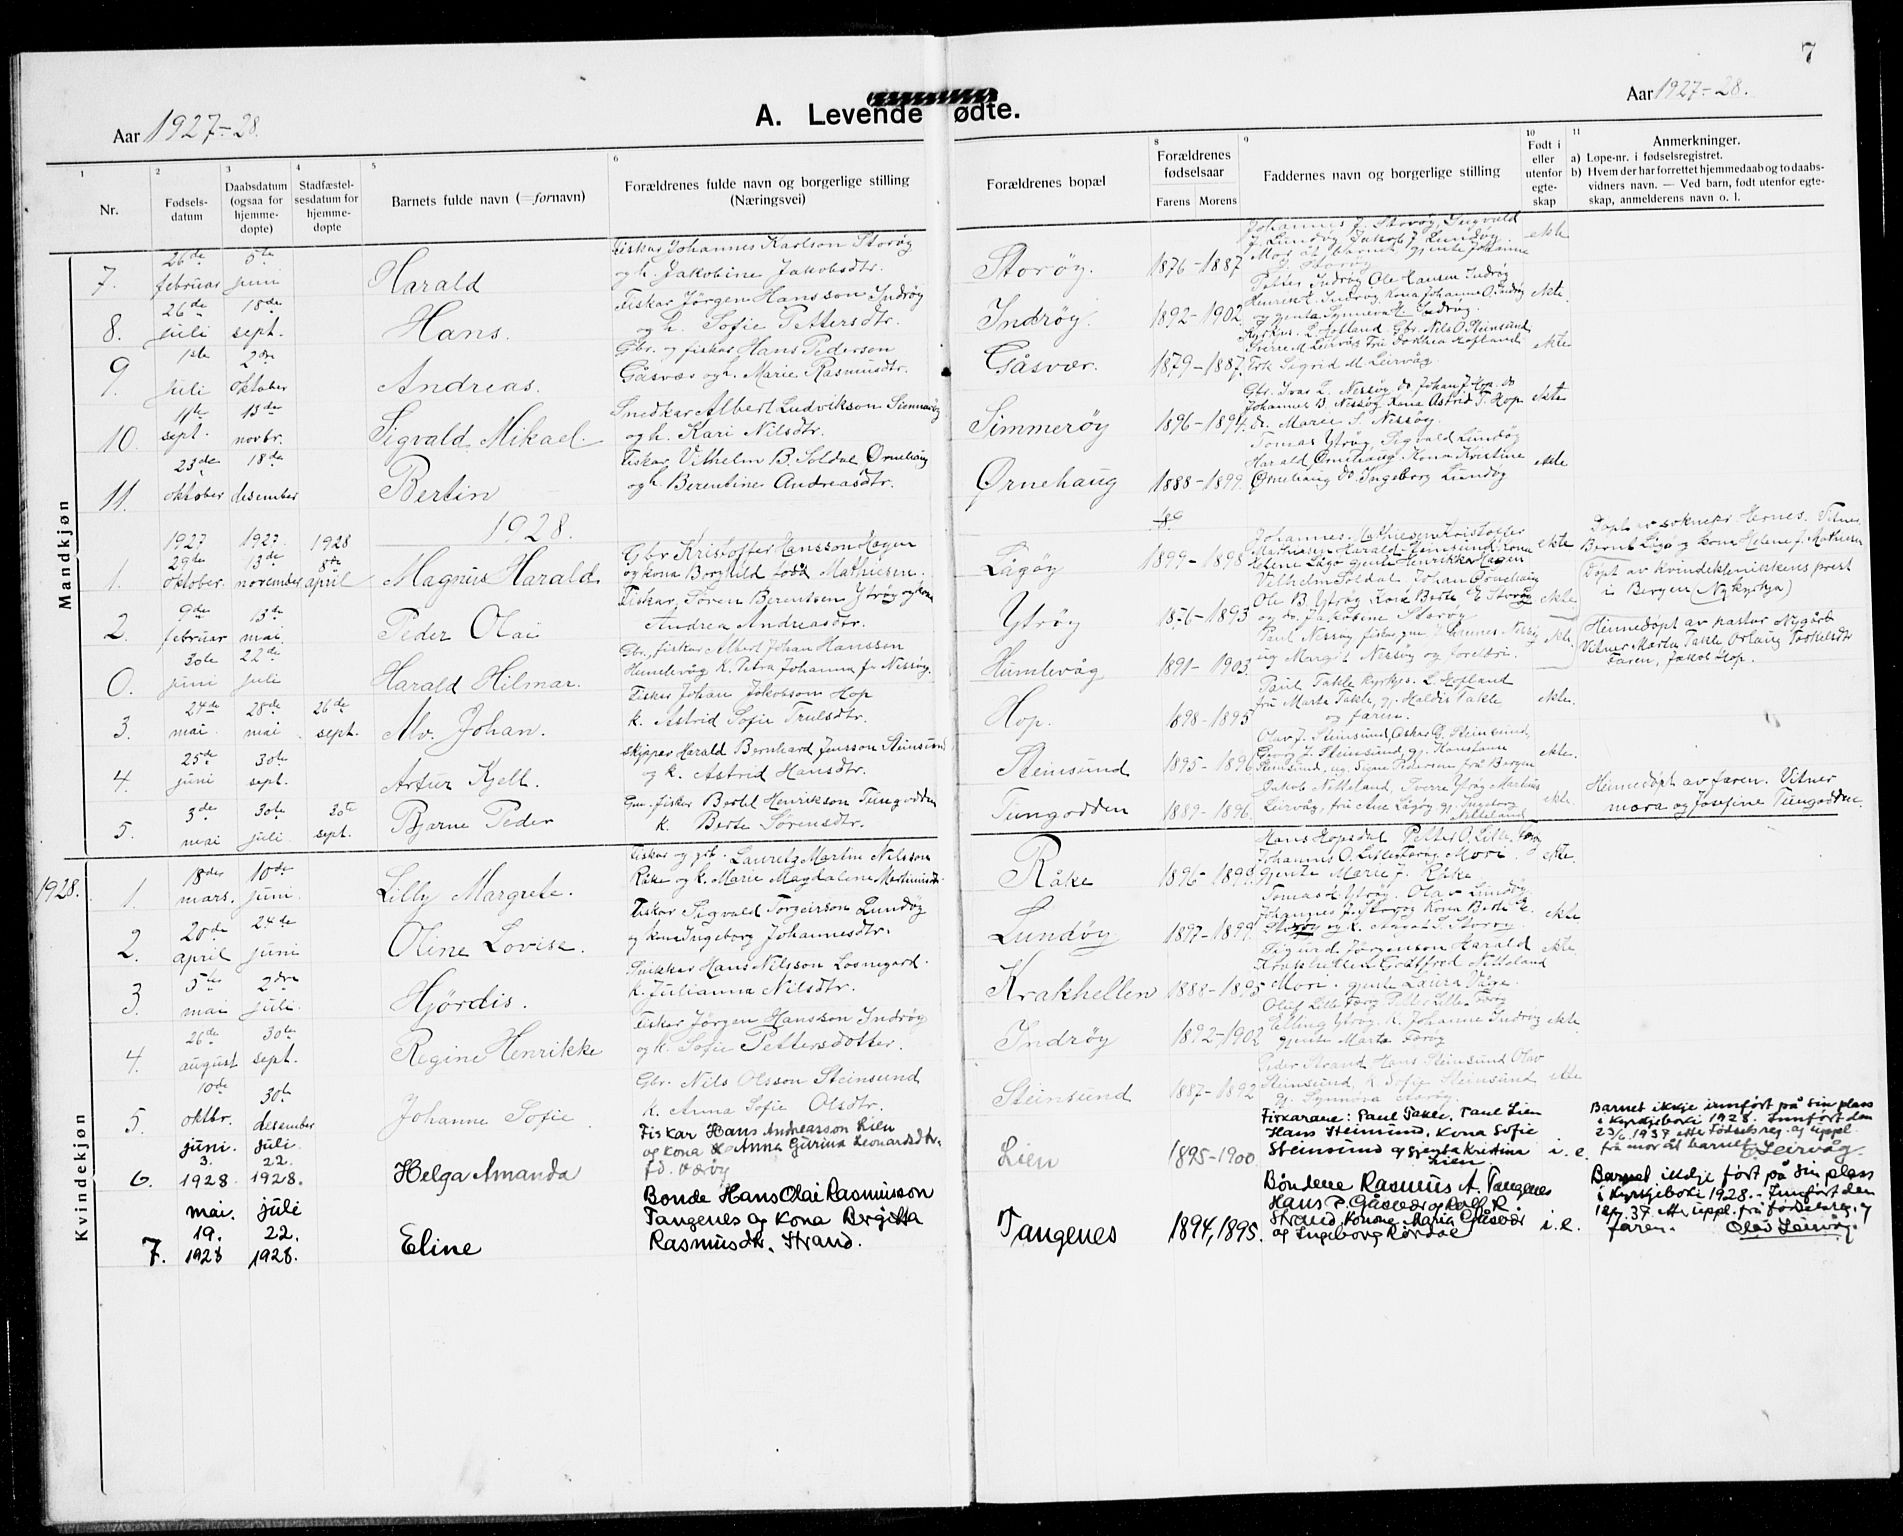 7
Aar 1927-28.
A. Levende ødte.
Aar 1927-28.
1 2 3 4 5 6 8 9 10 11
Nr.
Fødsels-
datum
Daabsdatum
(ogsaa for
hjemme-
døpte)
Stadfæstel-
sesdatum for
hjemme-
døpte
Barnets fulde navn (=fornavn)
Forældrenes fulde navn og borgerlige stilling
(Næringsvei)
Forældrenes bopæl
Forældrenes
fødselsaar
Farens Morens
Faddernes navn og borgerlige stilling
Født i
eller
utenfor
egte-
skap
Anmerkninger.
a) Løpe-nr. i fødselsregistret.
b) Hvem der har forrettet hjemmedaab og to daabs-
vidners navn. — Ved barn, født utenfor egte-
skap, anmelderens navn o. l.
Mandkjøn
7. 26de februar 5te juni Harald
Fiskar Johannes Karlson Storøy
og h. Jakobine Jakobsdtr.
Storøy. 1876-1887
Johannes J. Storøy, Ingvald
J. Lundøy Jakob J. Lundøy
Mor åt barnet, gjente Johanne
Storøy
ekte
8. 26de juli 18de sept. Hans.
Fiskar Jörgen Hansson Indrøy
og h. Sofie Pettersdtr.
Indrøy. 1892-1902
Petter Indrøy Ole Hansen Indrøy
Henrik H. Indrøy, Kona Johanne O. Indrøy
og gjenta Synneva H. Indrøy.
ekte
9 1ste juli 2dre oktober Andreas.
Gbr. og fiskar Hans Pederson
Gåsvær og h. Marie Rasmusdtr.
Gåsvær. 1879-1887.
Kyrkjes. L. Hofland. Gbr. Nils O. Steinsund
Sverre M. Leirvåg Fru Dorthea Hofland
Frk Sigrid M. Leirvåg.
ekte
10. 11te sept. 13de novbr. Sigvald Mikael.
Snedkar Albert Ludvikson Simmerøy
og h. Kari Nilsdtr.
Simmerøy 1896-1894.
Gbr. Ivar L. Nessøy do Johan J. Hop. do
Johannes B. Nessøy Kona Astrid T. Hop
do. Marie S. Nessøy.
ekte
11. 23de oktober 18de desember Bertin
Fiskar Vilhelm B. Soldal Ørnehaug
og h. Berentine Andreasdtr.
Ørnehaug 1888-1899.
Tomas Ytrøy, Sigvald Lundøy
Harald Ørnehaug. Kona Kristine
Ørnehaug do. Ingeborg Lundøy
ekte
1928.
1. 1927 29de oktober. 1927 13de november 1928 8de april Magnus Harald
Gbr Kristoffer Hansson Hagen
og kona Borghild född Mathiesen.
Lågøy 1899-1898
Johannes Mathiesen Kristoffer
Mathiesen Harald Steinsund, kona
Helene Lågø gjente Henrikke Hagen
ekte
Døpt av sokneprest Hernes. Vitner
Bernt Lågø og kona Helene f. Mathiesen
2. 9de februar 13de mai Peder Olai
Fiskar Søren Berentsen Ytrøy og kona
Andrea Andreasdtr.
Ytrøy 1876-1893
Vilhelm Soldal, Johan Ørnehaug
Ole B. Ytrøy Kona Berte E. Storøy
og do. Jakobine Storøy
ekte
(Døpt av Kvindeklinikkens prest
i Bergen (Nykyrkja)
0. 30te juni 22de juli Harald Hilmar.
Gbr., fiskar Albert Johan Hansson
Humlevåg k. Petra Johanna f. Nessøy.
Humlevåg 1891-1903
Paul Nessøy fiskar, gm. Johannes Nessøy
ug Margit Nessøy og foreldri.
ekte.
Heimedøpt av pastor Nygård
Vitner Marta Takle Oslaug Torkelsdtr
Faren, Jakob Hop.
3. 24de mai 28de mai 26de sept. Alv. Johan.
Fiskar Johan Jakobson Hop
k. Astrid Sofie Trulsdtr.
Hop. 1898-1895
Paul Takle kyrkjes. L Hofland
fru Marta Takle, gj. Haldis Takle
og faren.
ekte.
4. 25de juni 30te sept. Artur Kjell.
Skipper Harald Bernhard Jensson Steinsund
og k. Astrid Hansdtr.
Steinsund 1895-1896
Olav J. Steinsund, Oskar O. Steinsund,
Georg J. Steinsund, gj. Konstanse
Steinsund, ug. Signe Pedersen frå Bergen
ekte.
5. 3de mai 30te juli 30te sept. Bjarne Peder
Gm. fiskar Bertel Henrikson Tungodden
k. Berte Sörensdtr.
Tungodden 1889-1896.
Jakob Netteland, Sverre Ytrøy Markus
Leirvåg, fru Ane Lågøy gj. Ingeborg
Netteland
ekte.
Heimedøpt av faren. Vitner
mora og Josefine Tungodden.
1928.
Kvindekjøn
1. 18de mars. 10de juni Lilly Margrete.
Fiskar og gbr. Lauritz Martin Nilsson
Råke og k. Marie Magdalene Martinusdtr.
Råke 1896-1899
Hans Hopsdal Petter O. Lille Færøy
Johannes O. Lille Færøy. Mori.
gjente Marie J. Råke.
ekte.
2. 20de april 24de juni Oline Lovise.
Fiskar Sigvald Torgeirson Lundøy
og kona Ingeborg Johannesdtr.
Lundøy 1897-1899
Tomas L. Ytrøy. Olav Lundøy
Johannes J. Storøy Kona Berte E.
Storøy og k. S. Storøy.
ekte
3. 5te mai 2dre juli. Hjördis.
Snikkar Hans Nilsson Losnegard.
k. Julianna Nilsdtr.
Krakhellen 1888-1895
Sigurd Jørgenson Harald
Krakhellen Godtfred Netteland
Mori. gjente Laura Våge.
ekte
4. 26de august 30te sept. Regine Henrikke
Fiskar Jörgen Hansson Indrøy
og k. Sofie Pettersdotter.
Indrøy 1892-1902
Oluf Lille Færøy Petter Lille Færøy
Elling Ytrøy. k. Johanne Indrøy
gjente Marta Færøy
ekte
5. 10de oktbr. 30te desember Johanne Sofie
Gbr. Nils Olsson Steinsund
k. Anna Sofie Olsdtr.
Steinsund 1887-1892
Peder Strand Hans Steinsund Olav
Steinsund, k. Sofie Steinsund
gj. Synnöva Storøy.
ekte
6. juni. 3. 1928 juli 22. 1928. Helga Amanda
Fiskar Hans Andreasson Lien
og kona Anna Gurina Leonardsdtr.
fd. Værøy
Lien 1895-1900
Fiskarane: Paul Takle, Paul Lien
Hans Steinsund, Kona Sofie
Steinsund og gjenta Kristina
Lien
i. e.
Barnet ikkje innført på sin plass
i Kyrkjeboki 1928. Innført den
23/6 1937 etter Fødselsreg. og uppl.
frå mor åt barnet. O. Leirvåg.
7. mai. 19. 1928 juli 22. 1928. Eline
Bonde Hans Olai Rasmusson
Tangenes og Kona Bergitta
Rasmusdtr. Strand.
Tangenes 1894, 1895.
Böndene Rasmus A. Tangenes
Hans P. Gåsvær og Rolf R.
Strand, Konone Maria Gåsvær
og Ingeborg Rørdal
i. e.
Barnet ikkje fört på sin plass
i Kyrkjeboki 1928. - Innfört den
37 etter uppl. frå fødselsreg. og
faren. Olav Leirvåg.